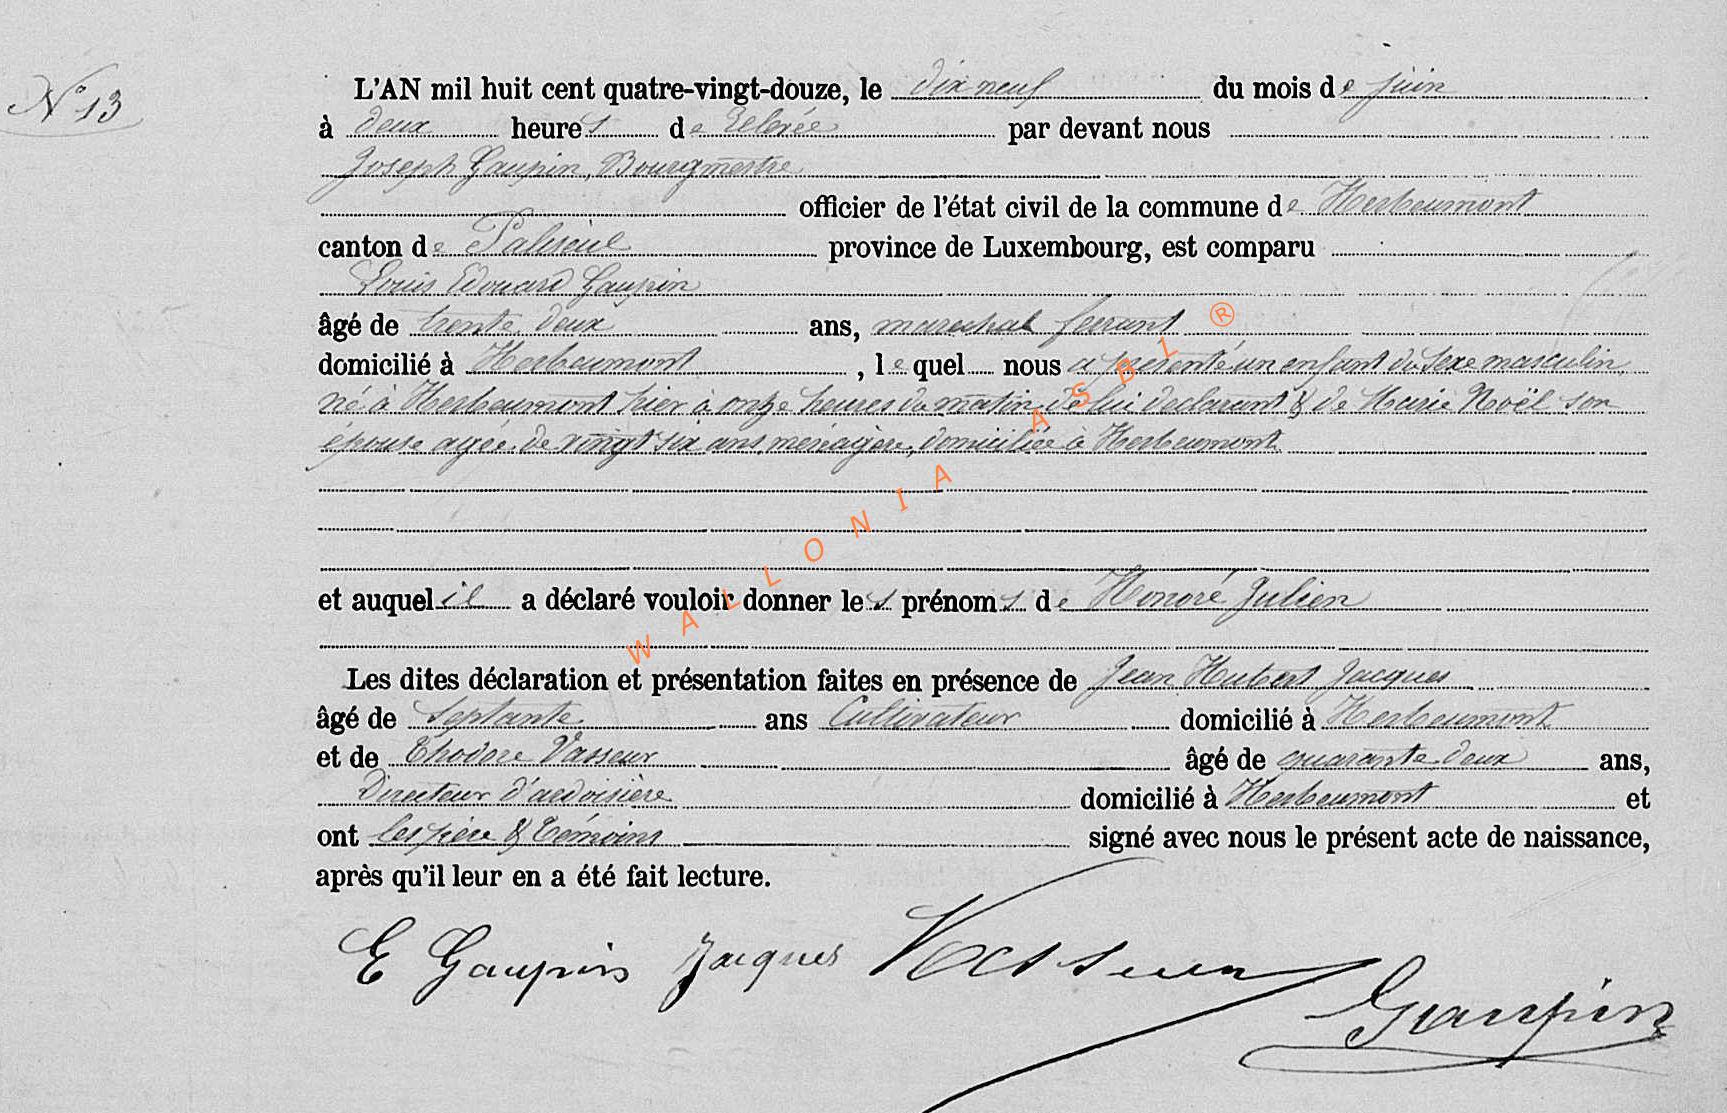 N° 13
L'AN mil huit cent quatre-vingt-douze, le dix neuf du mois de juin
à deux heures de relevée par devant nous
Joseph Gaupin, Bourgmestre
officier de l'état civil de la commune de Herbeumont
canton de Paliseul province de Luxembourg, est comparu
Louis Edouard Gaupin
âgé de trente deux ans, marechal ferrant
domicilié à Herbeumont, lequel nous a présenté un enfant du sexe masculin
né à Herbeumont hier à onze heures du matin de lui déclarant & de Marie Noël son
épouse agée de vingt six ans, ménagère, domiciliée à Herbeumont
et auquel il a déclaré vouloir donner les prénoms de Honoré Julien
Les dites déclaration et présentation faites en présence de Jean Hubert Jacques
âgé de septante ans Cultivateur domicilié à Herbeumont
et de Thodore Vasseur âgé de quarante deux ans,
Directeur d'ardoisière domicilié à Herbeumont et
ont les père & témoins signé avec nous le présent acte de naissance,
après qu'il leur en a été fait lecture.
E Gaupin Jacques Vasseur
Gaupin
WALLONIA ASBL ®